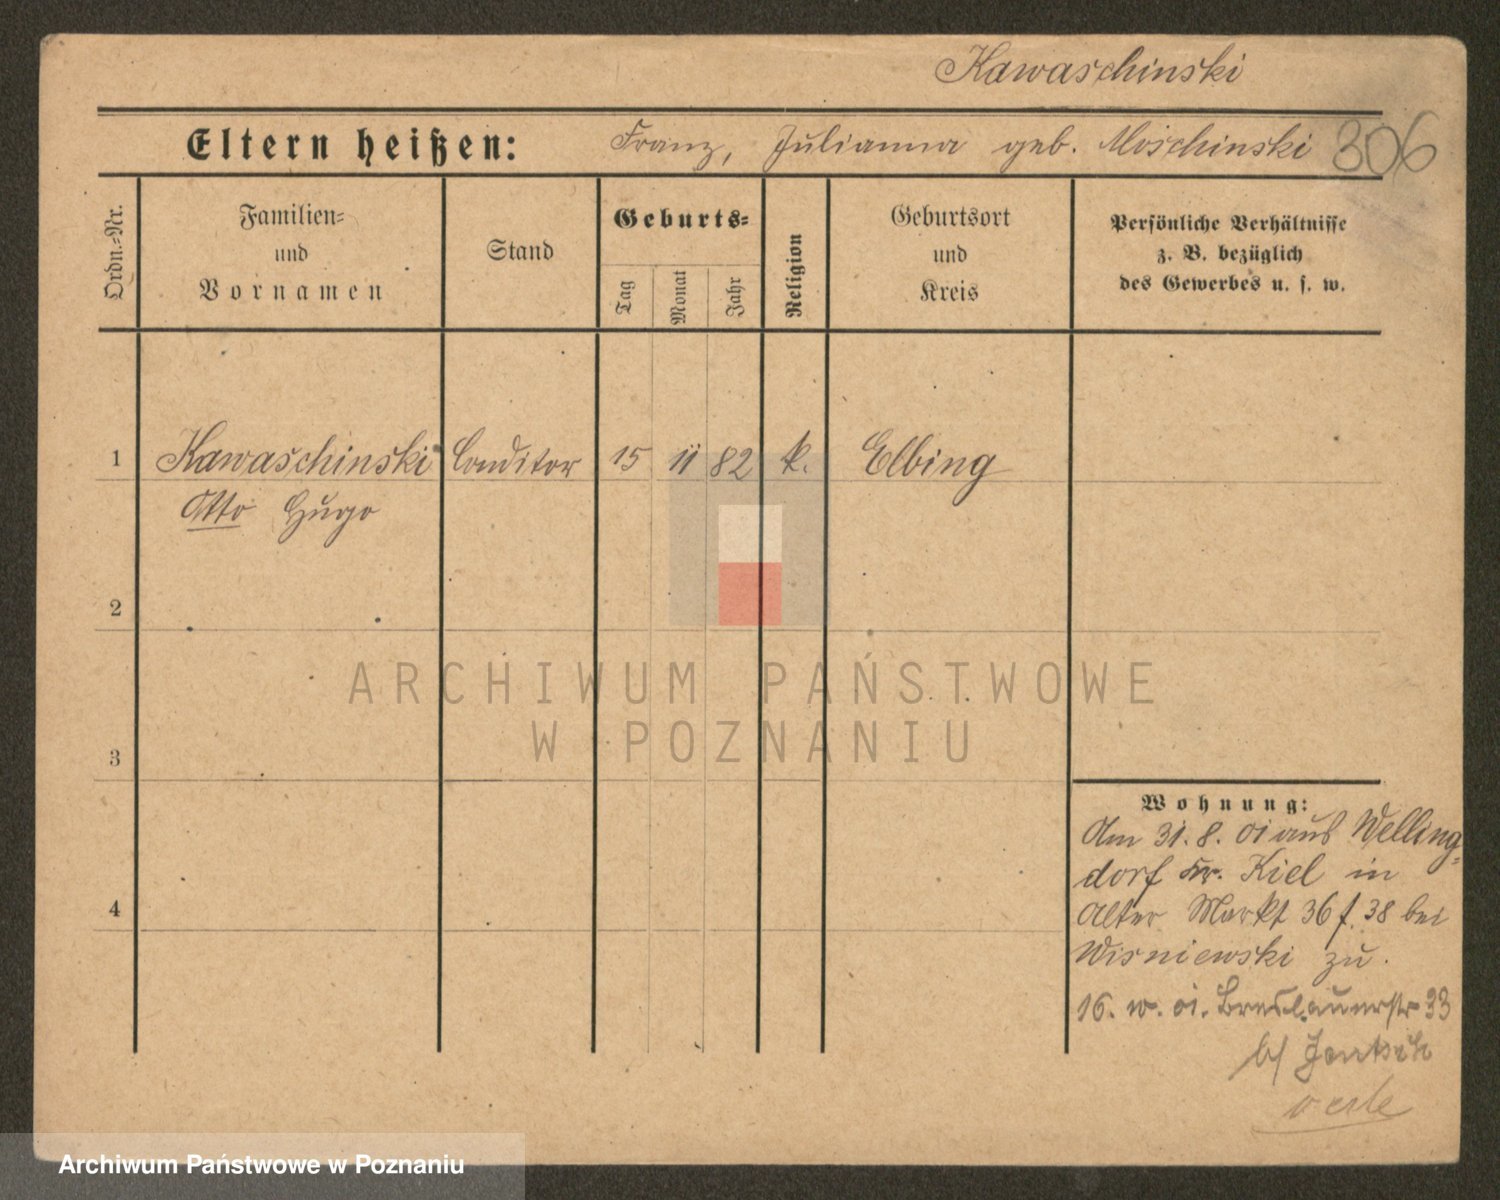 Kawaschinski
Eltern heißen: Franz, Julianna geb. Moschinski 306
Ordn.-Nr.
Familien-
und
Vornamen
Stand
Geburts-
Tag
Monat
Jahr
Religion
Geburtsort
und
Kreis
Persönliche Verhältnisse
z. B. bezüglich
des Gewerbes u. s. w.
1 Kawaschinski Conditor 15 11 82 k. Elbing
Otto Hugo
2
3
4
Wohnung:
Am 31.8.01 aus Welling-
dorf Kr. Kiel in
Alter Markt 36 f. 38 bei
Wisniewski zu.
16. 01. Breslauerstr 33
b/ Jentsch
ARCHIWUM PAŃSTWOWE
W POZNANIU
Archiwum Państwowe w Poznaniu